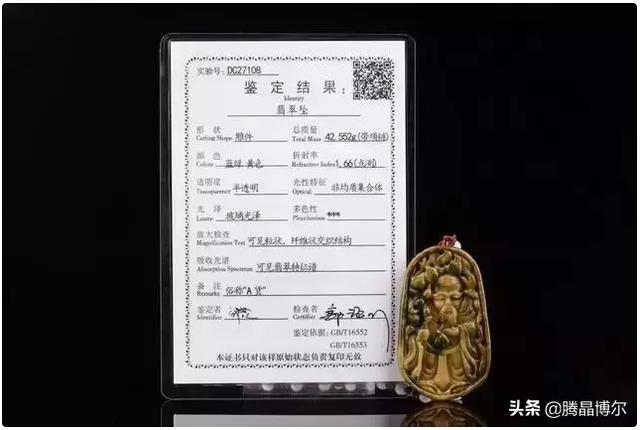 实验号: DC27108
鉴 定 结 果:
Identity
翡翠坠
形 状 雕件 总质量 42.552g(带项链)
Cutting Shape Total Mass
颜 色 蓝绿 黄色 折射率 1.66(点测)
Colour Refractive Index
透明度 半透明 光性特征 非均质集合体
Transparency Optical
光 泽 玻璃光泽 多色性 ***
Lustre Pleochroism
放大检查 可见粒状、纤维状交织结构
Magnification Test
吸收光谱 可见翡翠特征谱
Absorption Spectrum
备 注 俗称"A货"
Remarks
鉴定者 检查者
Identifier Certifier
鉴定依据: GB/T16552
GB/T16553
本证书只对该样原始状态负责复印无效
头条 @腾晶博尔